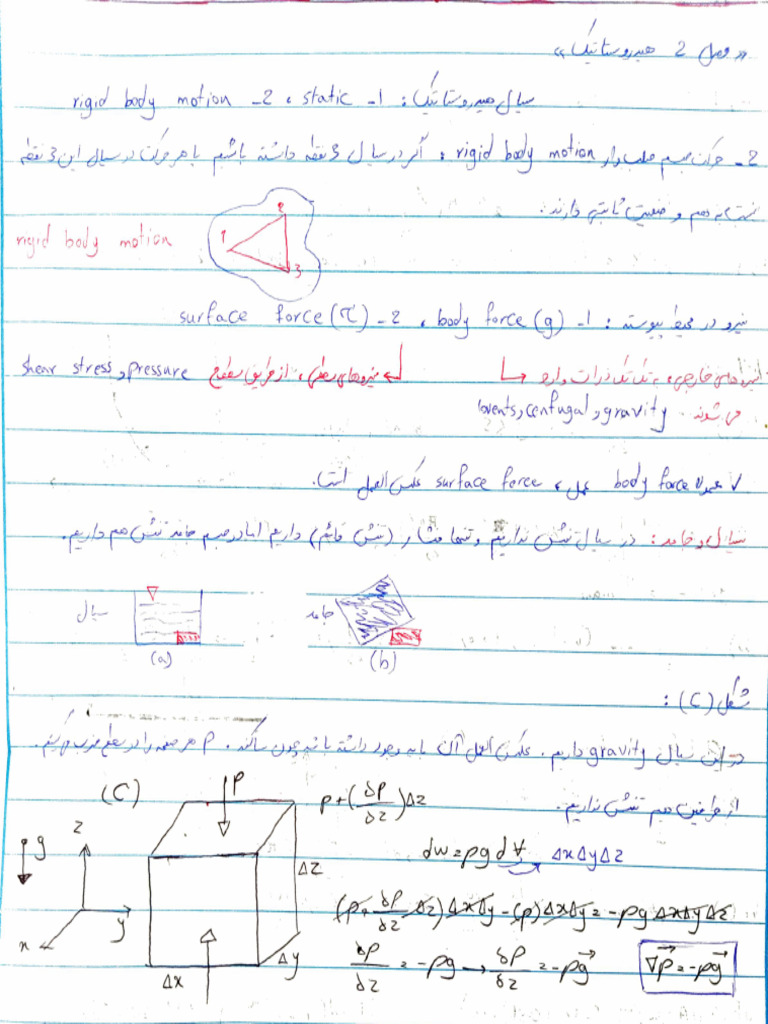 «فصل 2 هیدروستاتیک»
سیال هیدروستاتیک: 1- static ، 2- rigid body motion
2- حرکت جسم صلب وار rigid body motion ، اگر در سیال 3 نقطه داشته باشیم با هر حرکت در سیال این 3 نقطه
نسبت به هم وضعیت ثابتی دارند.
rigid body motion
1
2
3
نیرو در محیط پیوسته: 1- body force (g) ، 2- surface force (τ)
نیروهای خارجی، به تک تک ذرات وارد
نیروهای سطحی، از طریق سطح pressure و shear stress
می شوند. gravity و cenfugal و
√ معمولا body force عمل و surface force عکس العمل است.
سیال و جامد: در سیال تنش نداریم و تنها فشار (تنش قائم) داریم اما در جسم جامد تنش هم داریم.
سیال
جامد
(a)
(b)
شکل (C):
در این سیال gravity داریم. عکس العمل آن باید وجود داشته باشد چون ساکنه. P هر صفحه را در سطح ضرب می کنیم.
از طرفین هم تنش نداریم.
(C)
P
P+(δP/δz)Δz
g
z
y
x
Δz
Δy
Δx
dw=ρgd∀ ΔxΔyΔz
(P+δP/δz Δz)ΔxΔy-(P)ΔxΔy=-ρgΔxΔyΔz
δP/δz=-ρg→δP/δz=-ρg⃗
∇⃗P=-ρg⃗